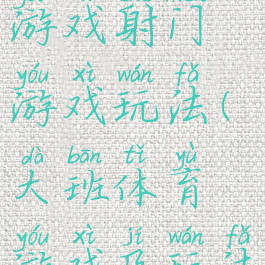 游戏射门
yóu xì wán fǎ
游戏玩法(
dà bān tǐ yù
大班体育
yóu xì jí wán fǎ
游戏及玩法